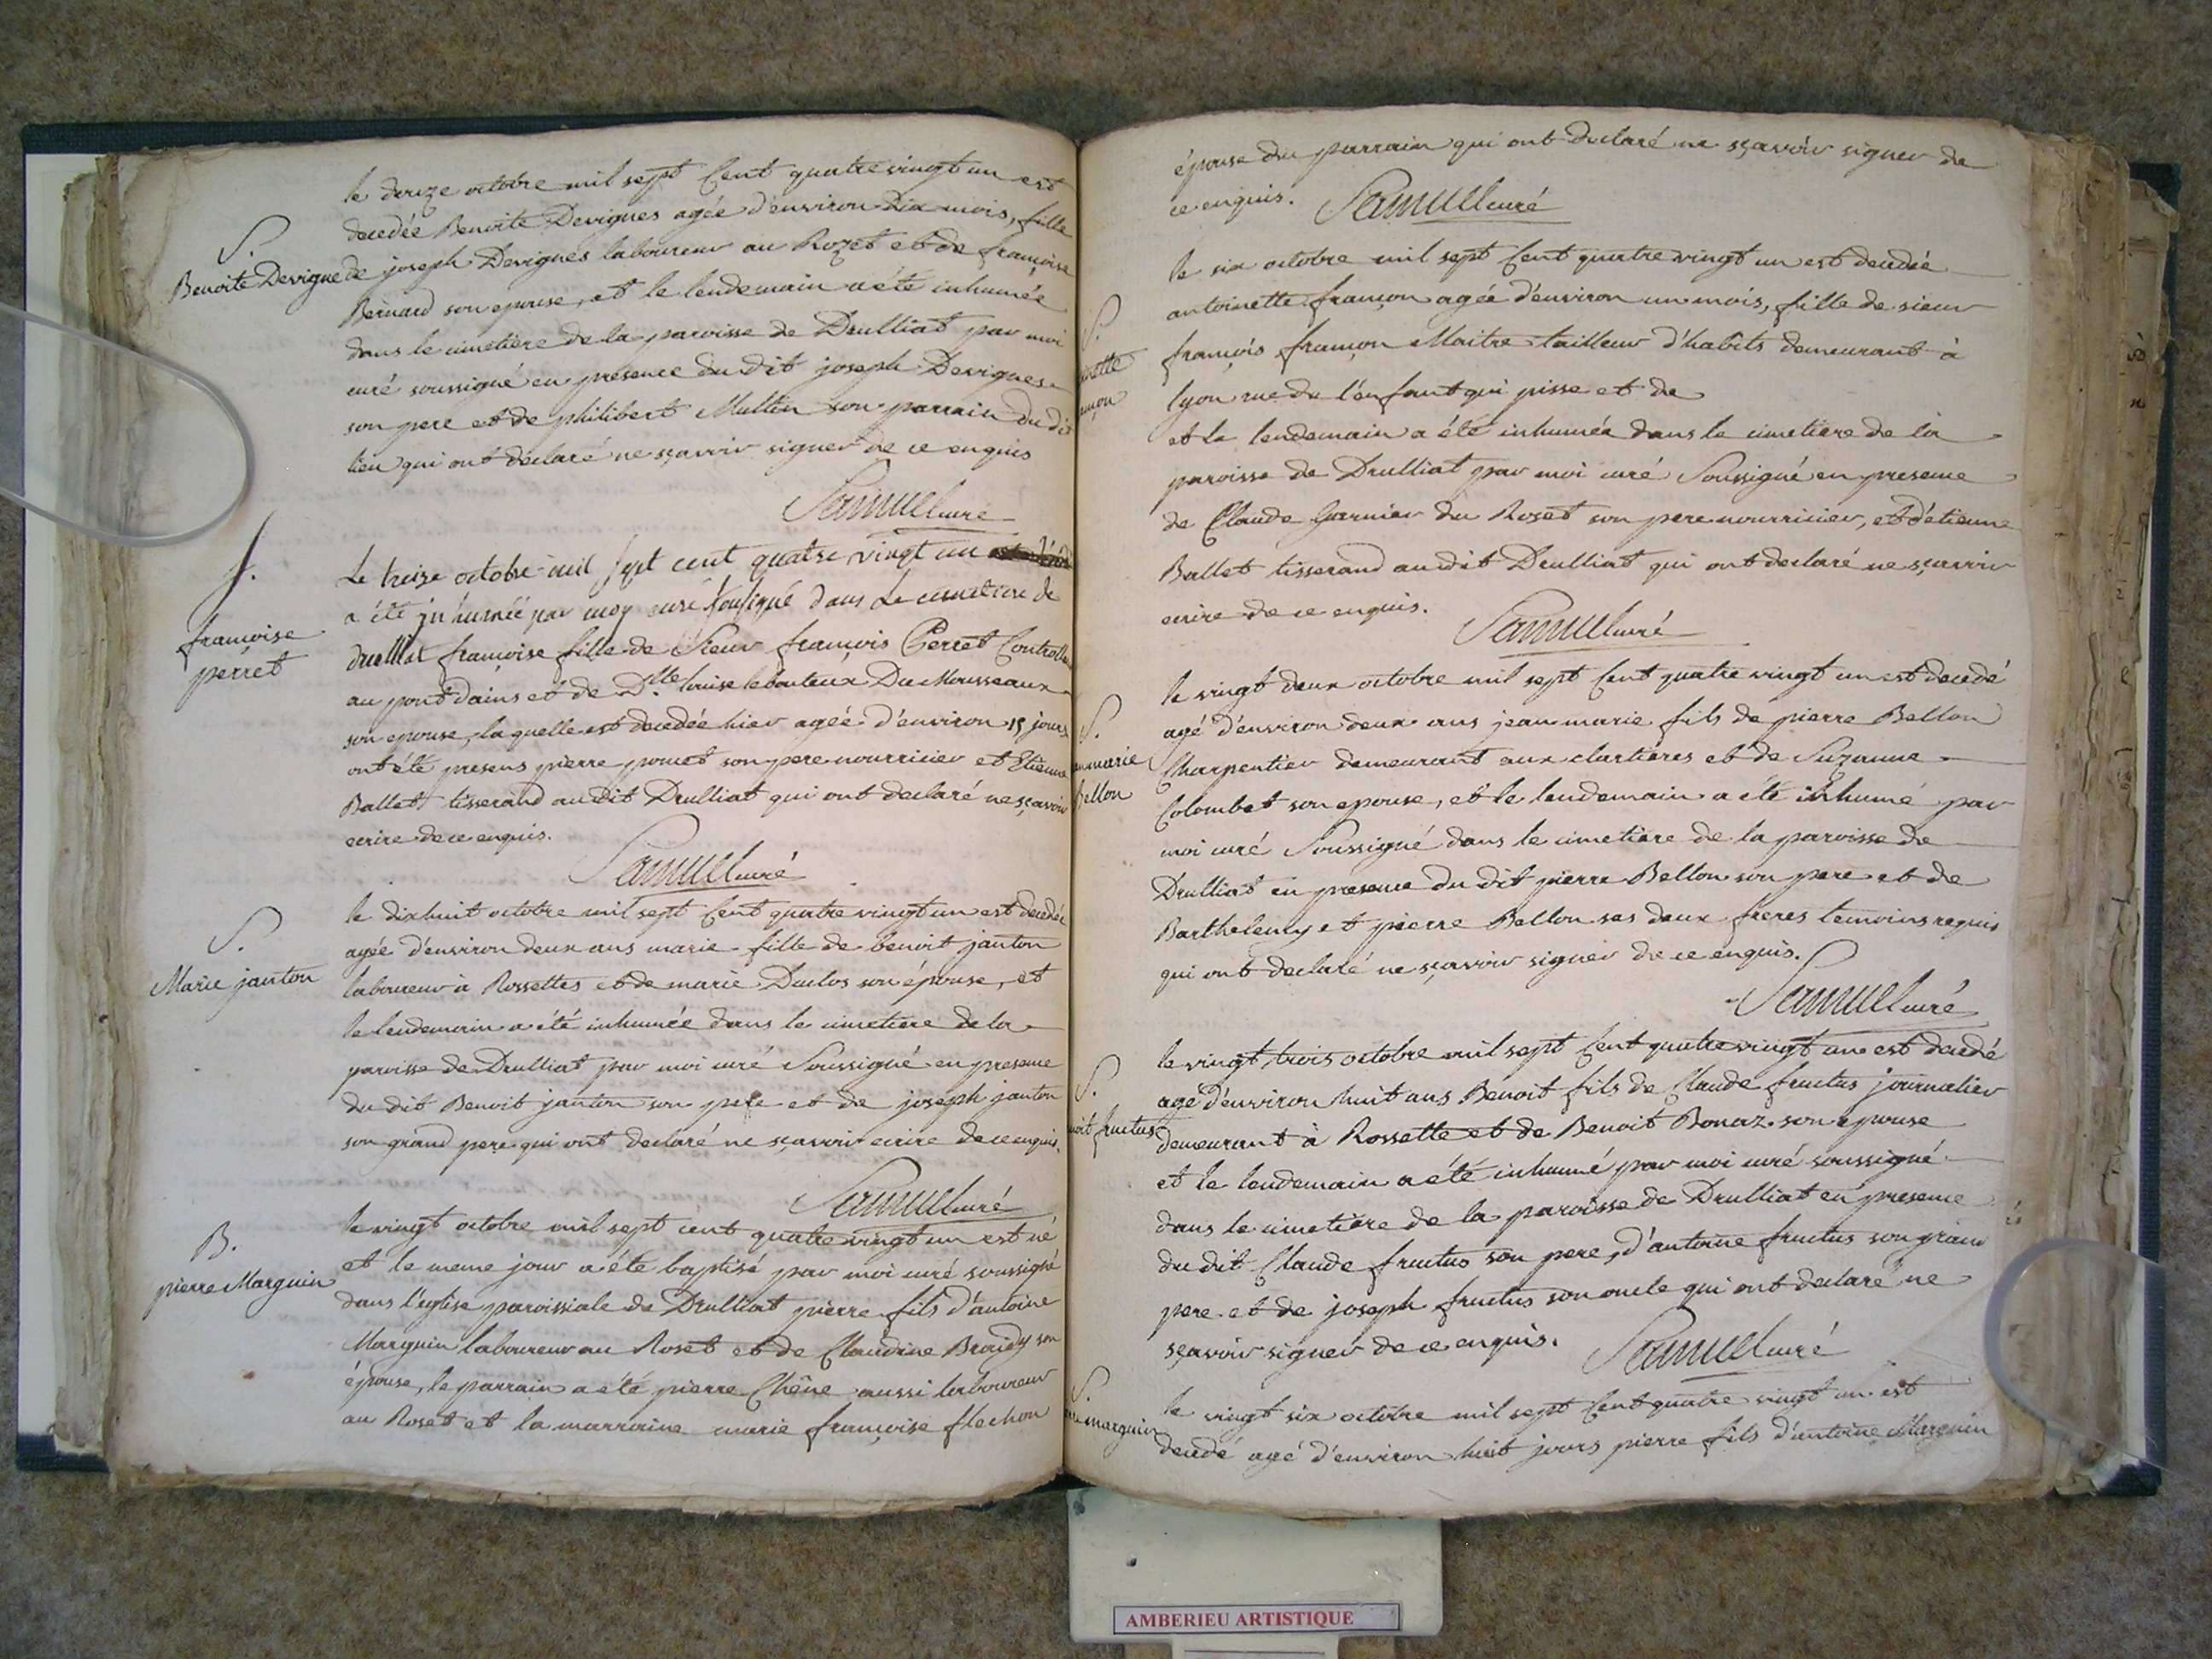 le douze octobre mil sept Cent quatre vingt un est
decedée Benoite Devignes agée d'environ dix mois, fille
S.
Benoite Devigne
de joseph Devignes laboureur au Rozet et de françoise
Bernard son epouse, et le lendemain a été inhumée
dans le cimetière de la paroisse de Drulliat par moi
curé soussigné en presence du dit joseph Devignes
son pere et de philibert Multin son parrain du dit
lieu qui ont déclaré ne sçavoir signer de ce enquis
Samuel curé
f.
françoise
perret
Le treize octobre mil sept cent quatre vingt un
a été jnhumée par moy curé soussigné dans Le cemetiere de
druilliat françoise fille de Sieur françois Perret Controlleur
au pont dains et de D.lle louise lebouteux Du Mousseaux
son epouse, laquelle est decedée hier ageé d'environ 15 jours
ont été presens pierre poncet son pere nourricier et Etienne
Ballet tisserand au dit Drulliat qui ont declaré ne sçavoir
ecrire de ce enquis.
Samuel curé
S.
Marie janton
le dixhuit octobre mil sept Cent quatre vingt un est decedée
agée d'environ deux ans marie fille de benoit janton
laboureur à Rossettes et de marie Duclos son épouse, et
le lendemain a été inhumée dans le cimetiere de la
paroisse de Drulliat par moi curé Soussigné en presence
du dit Benoit janton son pere et de joseph janton
son grand pere qui ont declaré ne sçavoir ecrire de ce enquis.
Samuel curé
B.
pierre Marguin
le vingt octobre mil sept cent quatre vingt un est né
et le meme jour a été baptisé par moi curé soussigné
dans l'eglise paroissiale de Drulliat pierre fils d'antoine
Marguin laboureur au Roset et de Claudine Broidy son
épouse, le parrain a été pierre Chêne aussi laboureur
au Roset et la marraine marie françoise flechon
épouse du parrain qui ont declaré ne sçavoir signer de
ce enquis. Samuel curé
S.
le six octobre mil sept Cent quatre vingt un est decedée
antoinette françon agée d'environ un mois, fille de sieur
françois françon Maitre tailleur d'habits demeurant à
lyon rue de l'enfant qui pisse et de
et le lendemain a été inhumée dans le cimetiere de la
paroisse de Drulliat par moi curé Soussigné en presence
de Claude Garnier du Roset son pere nourricier, et d'étienne
Ballet tisserand au dit Drulliat qui ont declaré ne sçavoir
ecrire de ce enquis.
Samuel curé
S.
marie
bellon
le vingt deux octobre mil sept Cent quatre vingt un est decedé
agé d'environ deux ans jean marie fils de pierre Bellon
Charpentier demeurant aux clartieres et de Suzanne
Colombet son epouse, et le lendemain a été inhumé par
moi curé Soussigné dans le cimetiere de la paroisse de
Drulliat en presence du dit pierre Bellon son pere et de
Barthelemy et pierre Bellon ses deux freres temoins requis
qui ont declaré ne sçavoir signer de ce enquis.
Samuel curé
S.
fructus
le vingt trois octobre mil sept Cent quatre vingt un est decedé
agé d'environ huit ans Benoit fils de Claude fructus journalier
demeurant à Rossette et de Benoit Bonaz son epouse
et le lendemain a été inhumé par moi curé soussigné
dans le cimetière de la paroisse de Drulliat en presence
du dit Claude fructus son pere, d'antoine fructus son grand
pere et de joseph fructus son oncle qui ont declaré ne
sçavoir signer de ce enquis. Samuel curé
S.
marguin
le vingt six octobre mil sept Cent quatre vingt un est
decedé agé d'environ huit jours pierre fils d'antoine Marguin
AMBERIEU ARTISTIQUE